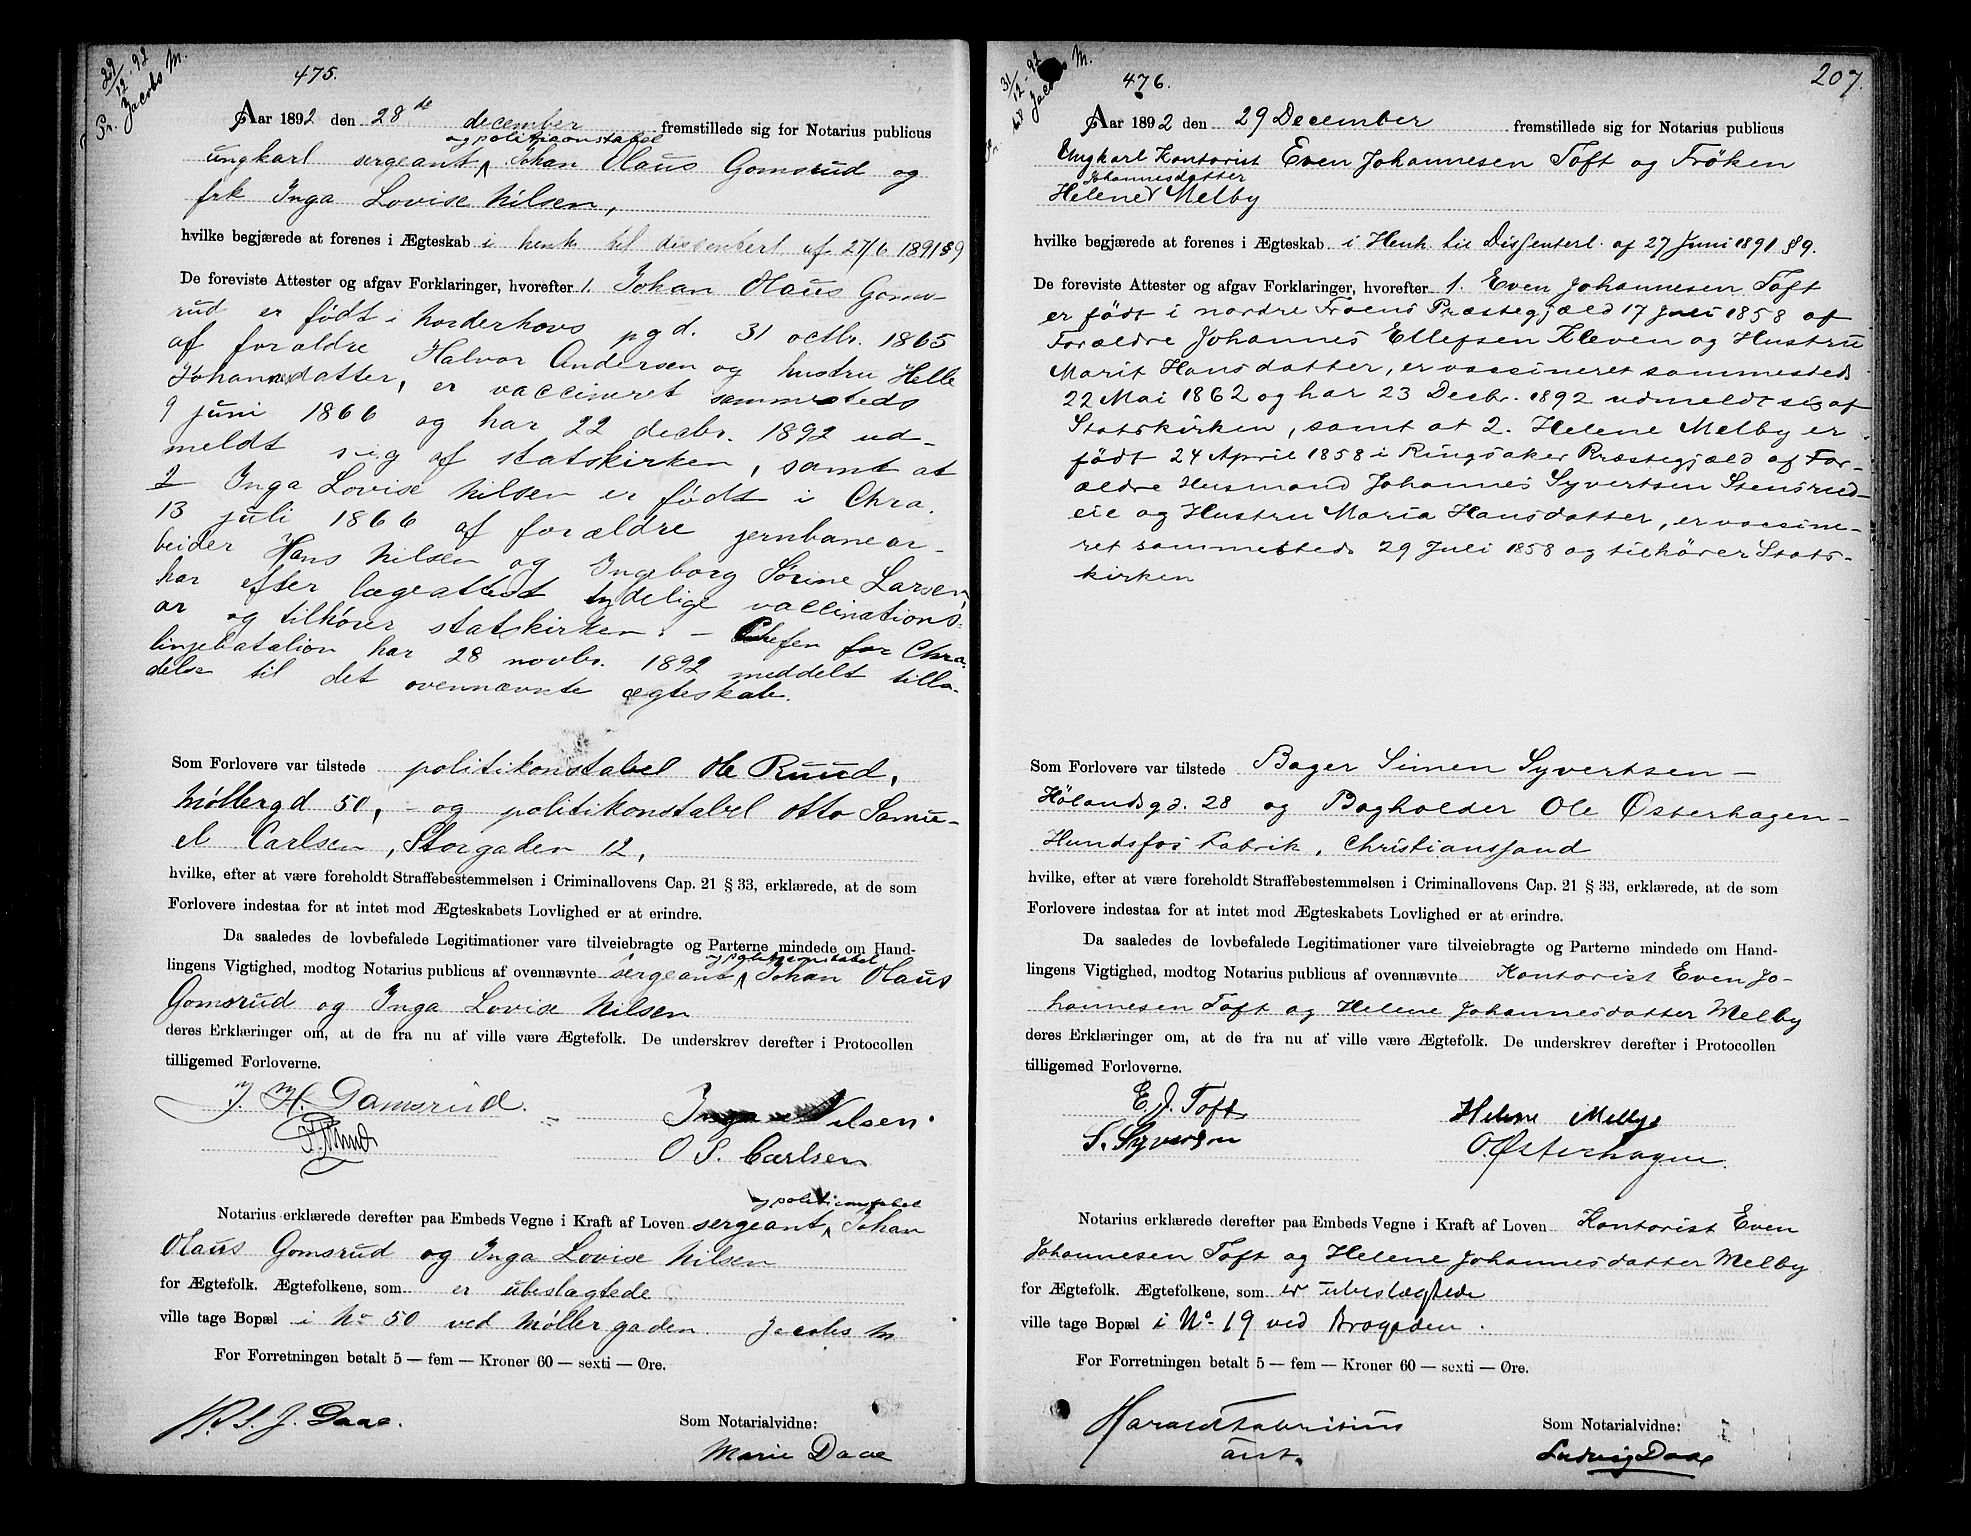 29/12-92
Pr. Jacobs M.
475.
Aar 1892 den 28de december fremstillede sig for Notarius publicus
og politikonstabel
ungkarl sergeant Johan Olaus Gomsrud og
frk Inga Lovise Nilsen,
hvilke begjærede at forenes i Ægteskab i henh. til dissenterl. af 27/6 1891 § 9
De foreviste Attester og afgav Forklaringer, hvorefter 1. Johan Olaus Goms-
rud er født i Norderhovs pgd. 31 octbr. 1865
af forældre Halvor Andersen og hustru Helle
Johannesdatter, er vaccineret sammesteds
9 juni 1866 og har 22 decbr. 1892 ud-
meldt sig af statskirken, samt at
2 Inga Lovise Nilsen er født i Chra.
13 juli 1866 af forældre jernbanear-
beider Hans Nilsen og Ingeborg Sørine Larsen,
har efter lægeattest tydelige vaccinations-
ar og tilhører statskirken. – Chefen for Chra.
linjebatalion har 28 novbr. 1892 meddelt tilla-
delse til det ovennævnte ægteskab.
Som Forlovere var tilstede politikonstabel Ole Ruud,
Møllergd 50, - og politikonstabel Otto Samu-
el Carlsen, Storgaden 12,
hvilke, efter at være foreholdt Straffebestemmelsen i Criminallovens Cap. 21 § 33, erklærede, at de som
Forlovere indestaa for at intet mod Ægteskabets Lovlighed er at erindre.
Da saaledes de lovbefalede Legitimationer vare tilveiebragte og Parterne mindede om Hand-
og politikonstabel
lingens Vigtighed, modtog Notarius publicus af ovennævnte sergeant Johan Olaus
Gomsrud og Inga Lovise Nilsen
deres Erklæringer om, at de fra nu af ville være Ægtefolk. De underskrev derefter i Protocollen
tilligemed Forloverne.
J. H. Gamsrud. Inga Nilsen.
O. Ruud O S. Carlsen
og politikonstabel
Notarius erklærede derefter paa Embeds Vegne i Kraft af Loven sergeant Johan
Olaus Gomsrud og Inga Lovise Nilsen
for Ægtefolk. Ægtefolkene, som er ubeslægtede
ville tage Bopæl i No 50 ved Møllergaden. Jacobs M
For Forretningen betalt 5 — fem — Kroner 60 — sexti — Øre.
J. Daae.
Som Notarialvidne:
Marie Daae
31/12-92
Jacobs M.
207.
476.
Aar 1892 den 29 December fremstillede sig for Notarius publicus
Ungkarl Kontorist Even Johannesen Toft og Frøken
Johannesdatter
Helene Melby
hvilke begjærede at forenes i Ægteskab i Henh. til Dissenterl. af 27 Juni 1891 § 9.
De foreviste Attester og afgav Forklaringer, hvorefter 1. Even Johannesen Toft
er født i nordre Froens Præstegjæld 17 Juli 1858 af
Forældre Johannes Ellefsen Kleven og Hustru
Marit Hansdatter, er vassineret sammesteds
22 Mai 1862 og har 23 Decbr. 1892 udmeldt sig af
Statskirken, samt at 2. Helene Melby er
født 24 April 1858 i Ringsaker Præstegjæld af For-
ældre Husmand Johannes Syvertsen Stensrud-
eie og Hustru Maria Hansdatter, er vassine-
ret sammesteds 29 Juli 1858 og tilhører Stats-
kirken
Som Forlovere var tilstede Bager Simen Syvertsen –
Hølandsgd. 28 og Bogholder Ole Østerhagen –
Hundsfos Fabrik, Christianssand
hvilke, efter at være foreholdt Straffebestemmelsen i Criminallovens Cap. 21 § 33, erklærede, at de som
Forlovere indestaa for at intet mod Ægteskabets Lovlighed er at erindre.
Da saaledes de lovbefalede Legitimationer vare tilveiebragte og Parterne mindede om Hand-
lingens Vigtighed, modtog Notarius publicus af ovennævnte Kontorist Even Jo-
hannesen Toft og Helene Johannesdatter Melby
deres Erklæringer om, at de fra nu af ville være Ægtefolk. De underskrev derefter i Protocollen
tilligemed Forloverne.
E. J. Toft Helene Melbye
S. Syversen O. Østerhagen.
Notarius erklærede derefter paa Embeds Vegne i Kraft af Loven Kontorist Even
Johannesen Toft og Helene Johannesdatter Melby
for Ægtefolk. Ægtefolkene, som er ubeslægtede
ville tage Bopæl i No 19 ved Brogaden.
For Forretningen betalt 5 — fem — Kroner 60 — sexti — Øre.
Harald Fabritius
cst.
Som Notarialvidne:
Ludvig Daae